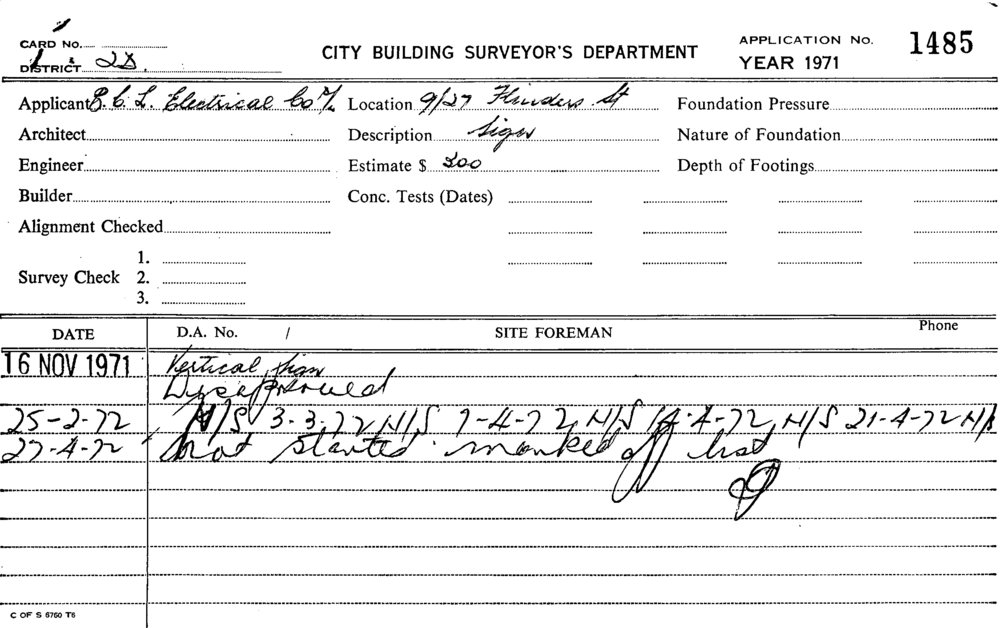 CARD No.
DISTRICT 2D.
CITY BUILDING SURVEYOR'S DEPARTMENT
APPLICATION No. 1485
YEAR 1971
Applicant E.C.L. Electrical Co Location 9/27 Flinders St Foundation Pressure
Architect Description Sign Nature of Foundation
Engineer Estimate $ 200 Depth of Footings
Builder Conc. Tests (Dates)
Alignment Checked
1.
Survey Check 2.
3.
DATE D.A. No. / SITE FOREMAN Phone
16 NOV 1971 Vertical sign
Disapproved
25-2-72 N/S 3-3-72 N/S 7-4-72, N/S 14-4-72, N/S 21-4-72 N/S
27-4-72 Not started marked off list
C OF S 5750 T6